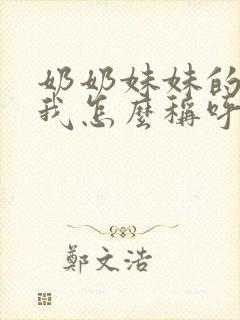 奶奶妹妹的
我怎麼稱呼
鄭文浩